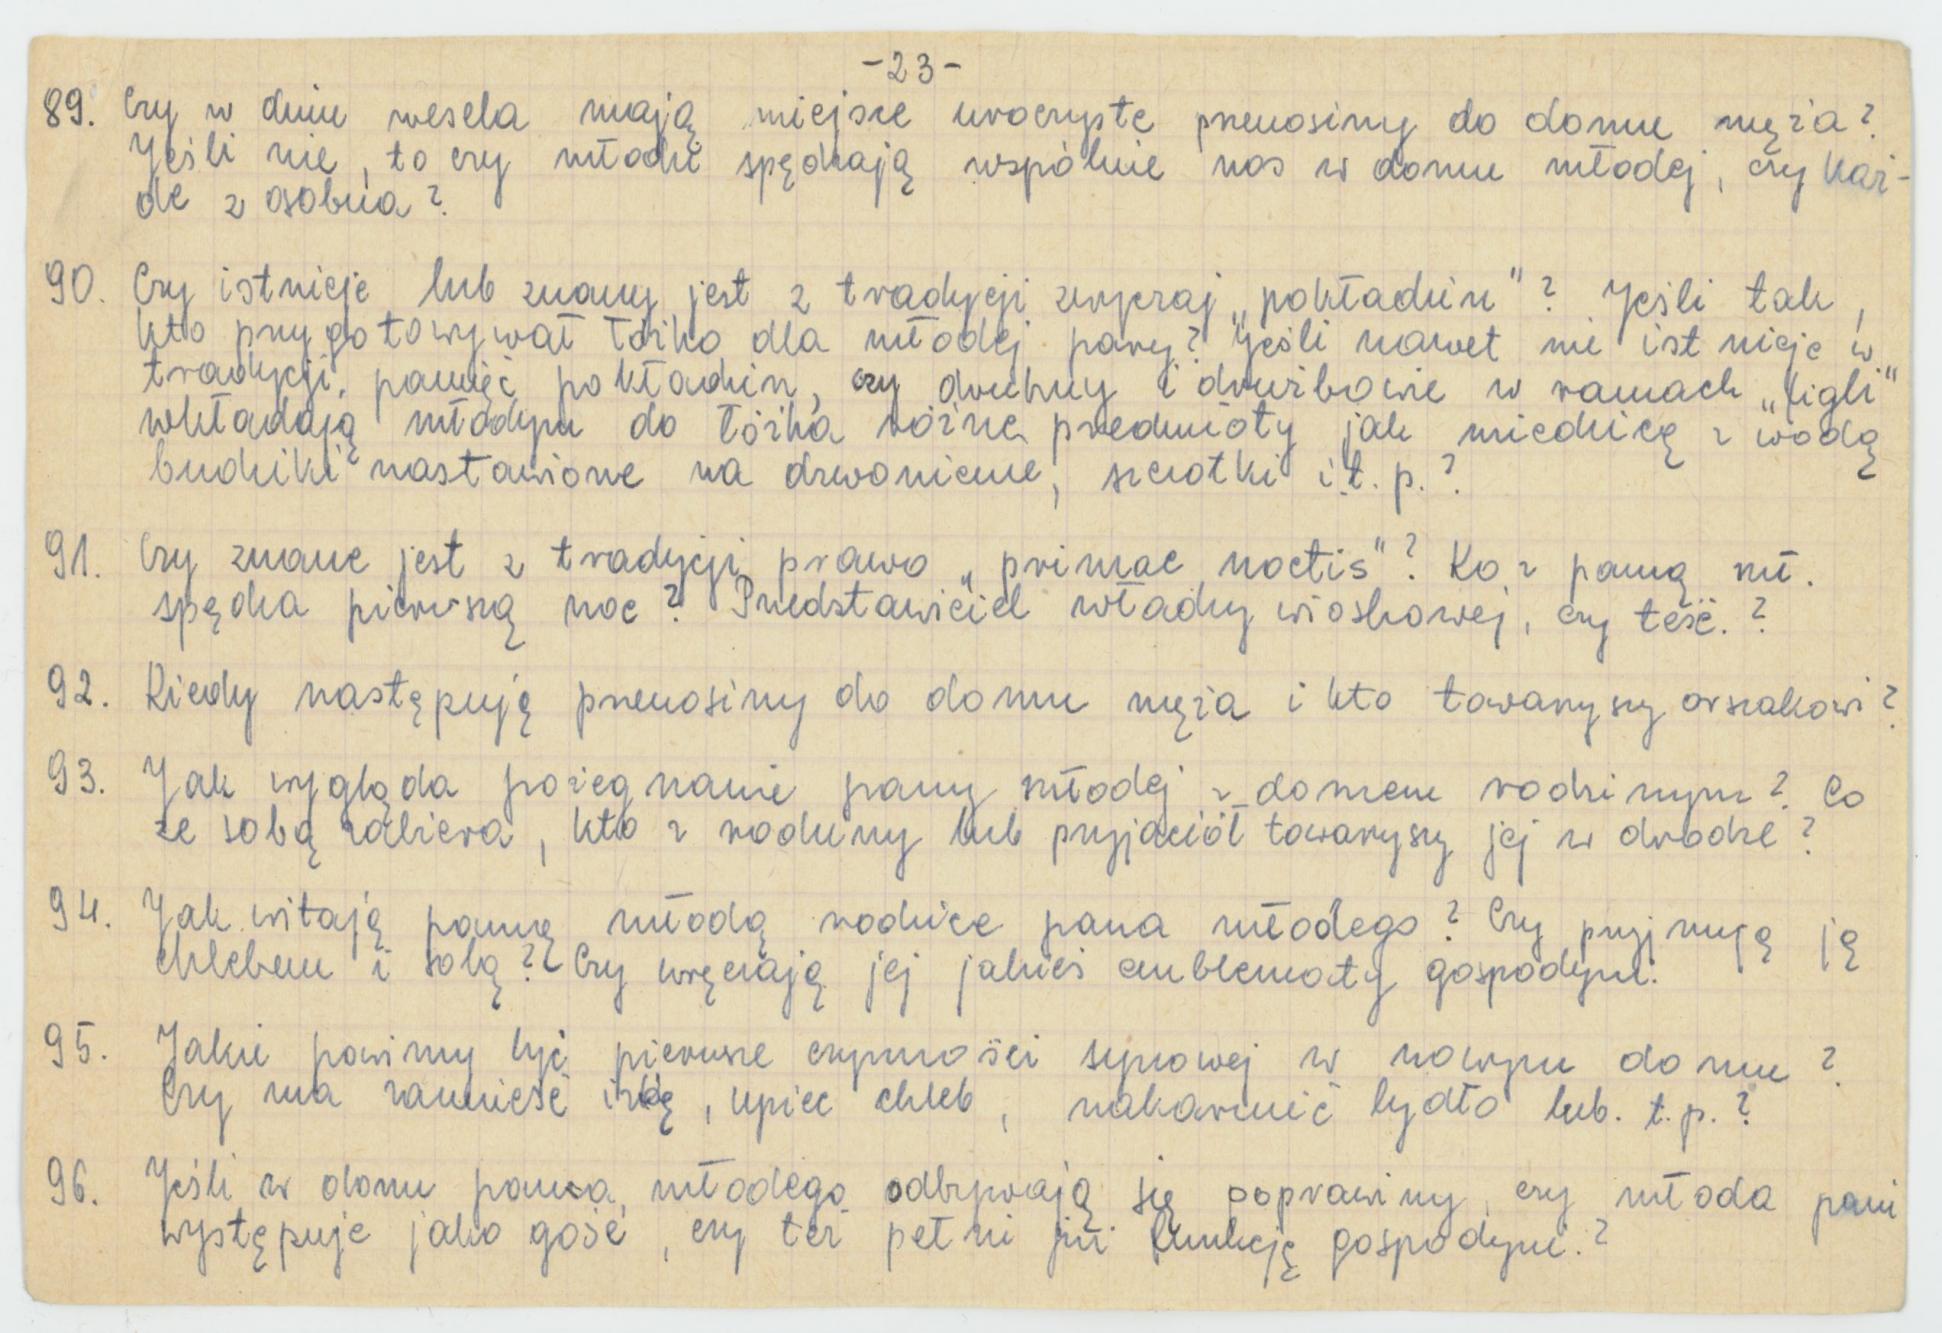 -23-
89. Czy w dniu wesela mają miejsce uroczyste przenosiny do domu męża?
Jeśli nie, to czy młodzi spędzają wspólnie noc w domu młodej, czy każ-
de z osobna?
90. Czy istnieje lub znany jest z tradycji zwyczaj „pokładzin"? Jeśli tak,
kto przygotowywał łóżko dla młodej pary? Jeśli nawet nie istnieje w
tradycji, pamięć pokładzin, czy druhny i drużbowie w ramach „figli"
wkładają młodym do łóżka różne przedmioty jak miednicę z wodą
budziki nastawione na dzwonienie, szczotki i.t.p.?
91. Czy znane jest z tradycji prawo „primae noctis"? Ko z panną mł.
spędza pierwszą noc? Przedstawiciel władzy wioskowej, czy teść.?
92. Kiedy następują przenosiny do domu męża i kto towarzyszy orszakowi?
93. Jak wygląda pożegnanie panny młodej z domem rodzinnym? Co
ze sobą zabiera, kto z rodziny lub przyjaciół towarzyszy jej w drodze?
94. Jak witają pannę młodą rodzice pana młodego? Czy przyjmują ją
chlebem i solą?? Czy wręczają jej jakieś emblematy gospodyni.
95. Jakie powinny być pierwsze czynności synowej w nowym domu?
Czy ma zamieść izbę, upiec chleb, nakarmić bydło lub. t.p.?
96. Jeśli w domu pana młodego odbywają się poprawiny, czy młoda pani
występuje jako gość, czy też pełni już funkcję gospodyni.?